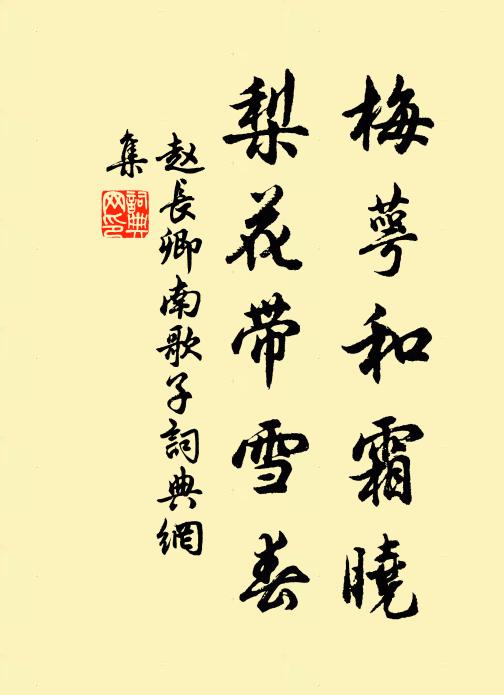 梅萼和霜曉
梨花帶雪春
赵長卿南歌子詞典網
集
詞典
网印